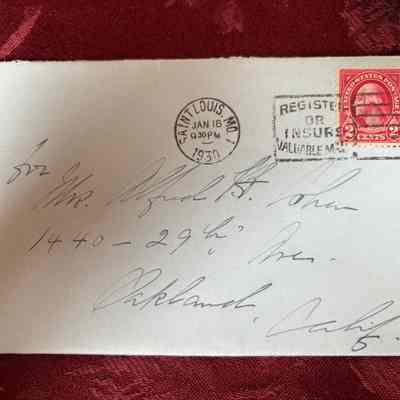 SAINT LOUIS, MO. 1
JAN 16
9 30 PM
1930
REGISTER
OR
INSURE
VALUABLE M
UNITED STATES POSTAGE
2 CENTS 2
for
Mr. Alfred H. Shea
1440 - 29th Ave.
Oakland,
Calif.